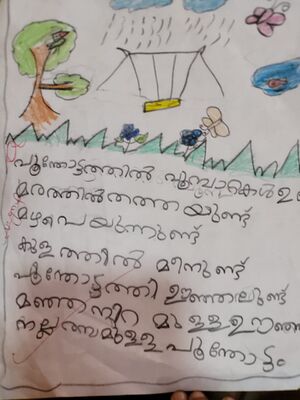 പൂന്തോട്ടത്തിൽ പൂമ്പാറ്റകൾ ഉ
മരത്തിൽ തത്ത യുണ്ട്
മഴ പെയുന്നുണ്ട്
കുള ത്തിൽ മീനുണ്ട്
പൂന്തോട്ടത്തി ഊഞ്ഞാലുണ്ട്
മഞ്ഞനിറ മുള്ള ഊഞ്ഞ
നല്ല രസമുള്ള പൂന്തോട്ടം